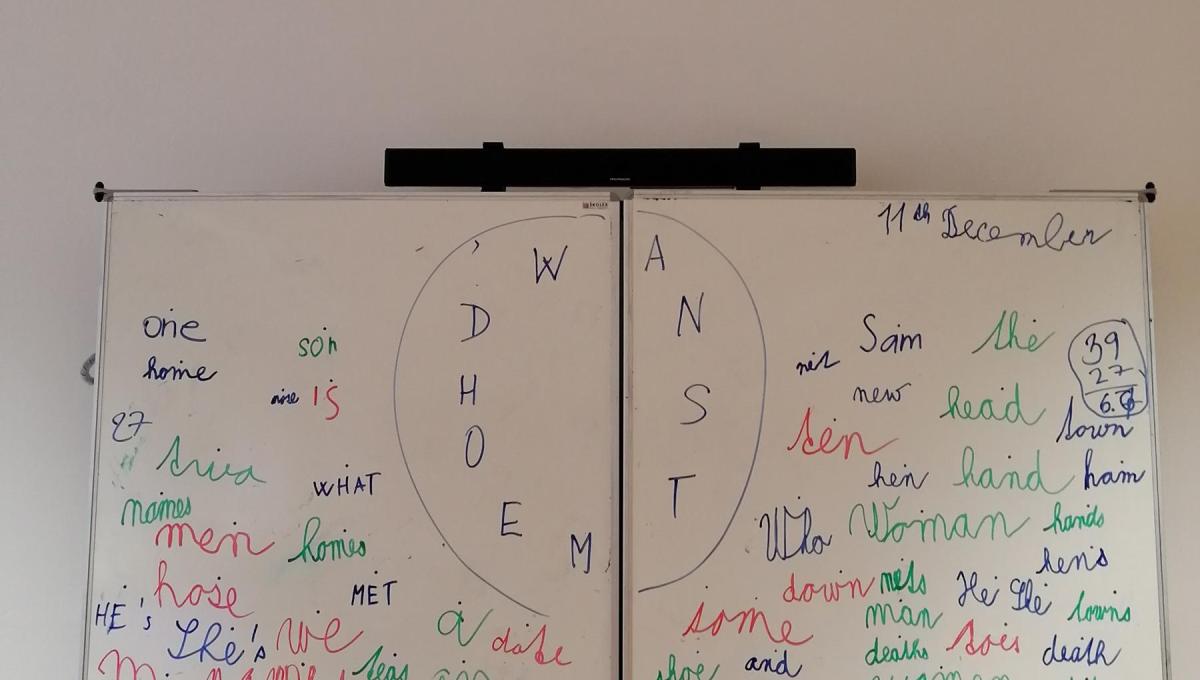 ŠKOLEX
11th December
W A
D N
H S
O
E T
M
one
son
home
nine is
27
WHAT
names
men homes
hose MET
HE's She's we a date
net Sam the 39
27
new head
ten town
hen hand ham
Who Woman hands
hens
down nets He She towns
some man
deaths does death
shoe and